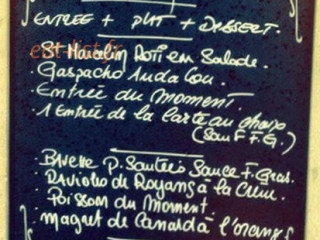 ENTREE + PLAT + DESSERT.
St Marcelin Roti en Salade.
Gaspacho Andalou.
Entrée du Moment.
1 Entrée de la carte au choix
(Sauf F.G.)
Bavette P. Sautées Sauce F. Gras.
Ravioles de Royans à la Crème.
Poisson du Moment
Magret de Canard à l'orange